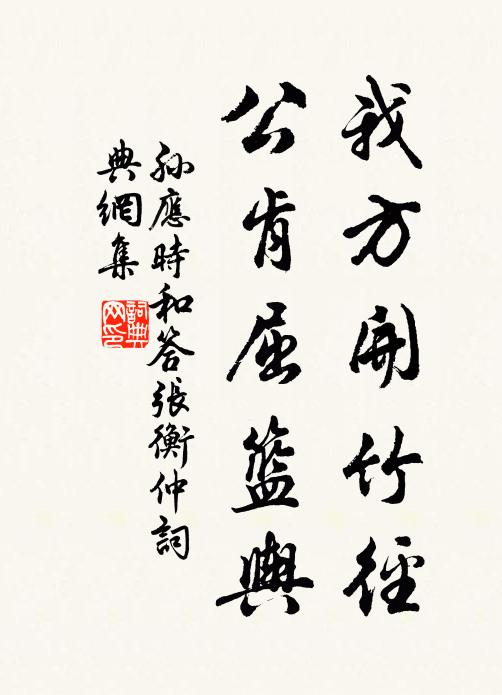 我方開竹徑
公肯屈籃輿
孫應時和答張衡仲詞
典網集
詞典
网印